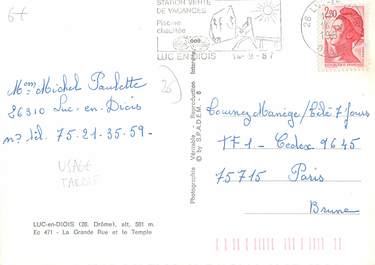 6f
STATION VERTE
DE VACANCES
Piscine
chauffée
LUC EN DIOIS
14-9-87
26 LU
2,20
Mme Michel Paulette
26310 Luc-en-Diois
n° tél. 75-21-35-59-
26
USAGE
TARDIF
LUC-en-DIOIS (26. Drôme), alt. 581 m.
Ec 471 - La Grande Rue et le Temple
Photographie Véritable - Reproduction
© by S.P.A.D.E.M. - 6
Tournez Manège/Télé 7 Jours
TF1 - Cedex 9645
75715 Paris
Brune